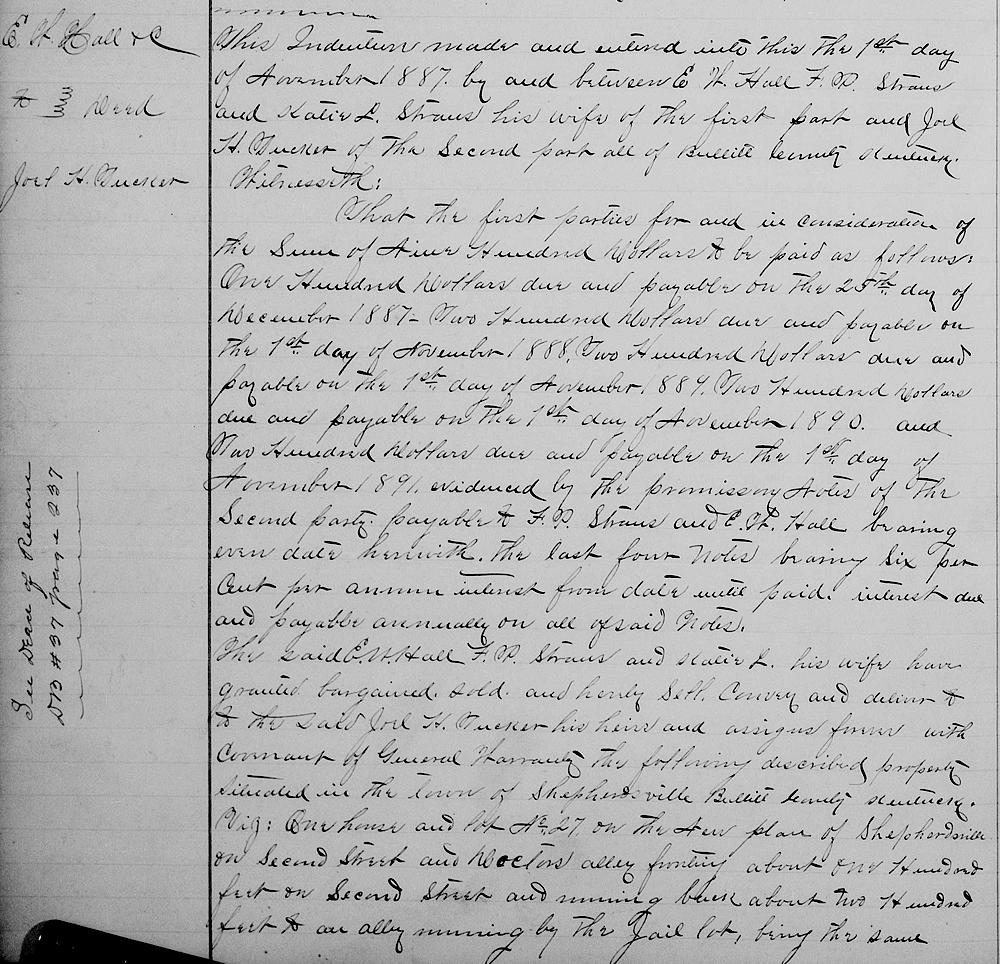 E. W. Hall & C
to } Deed
Joel H. Tucker
This Indenture made and entered into this the 1st day
of November 1887. by and between E. W. Hall F. P. Straus
and Katie L. Straus his wife of the first part and Joel
H. Tucker of the Second part all of Bullitt County Kentucky.
Witnesseth:
That the first parties for and in consideration of
the Sum of Nine Hundred Dollars to be paid as follows:
One Hundred Dollars due and payable on the 25th day of
December 1887- Two Hundred Dollars due and payable on
the 1st day of November 1888. Two Hundred Dollars due and
payable on the 1st day of November 1889. Two Hundred Dollars
due and payable on the 1st day of November 1890. and
Two Hundred Dollars due and payable on the 1st day of
November 1891. evidenced by the promissory Notes of the
Second party. payable to F. P. Straus and E. W. Hall bearing
even date herewith. the last four Notes bearing Six per
Cent per annum interest from date until paid. interest due
and payable annually on all of said Notes.
The said E. W. Hall F. P. Straus and Katie L. his wife have
granted bargained. sold. and hereby Sell. Convey and deliver to
to the said Joel H. Tucker his heirs and assigns forever with
Covenant of General Warranty the following described property
situated in the town of Shepherdsville Bullitt County Kentucky.
Viz: One house and lot No. 27. on the New plan of Shepherdsville
on Second Street and Doctors alley fronting about one Hundred
feet on Second Street and running back about two Hundred
feet to an alley running by the Jail lot, being the same
See Deed of Release
DB #37 page 237